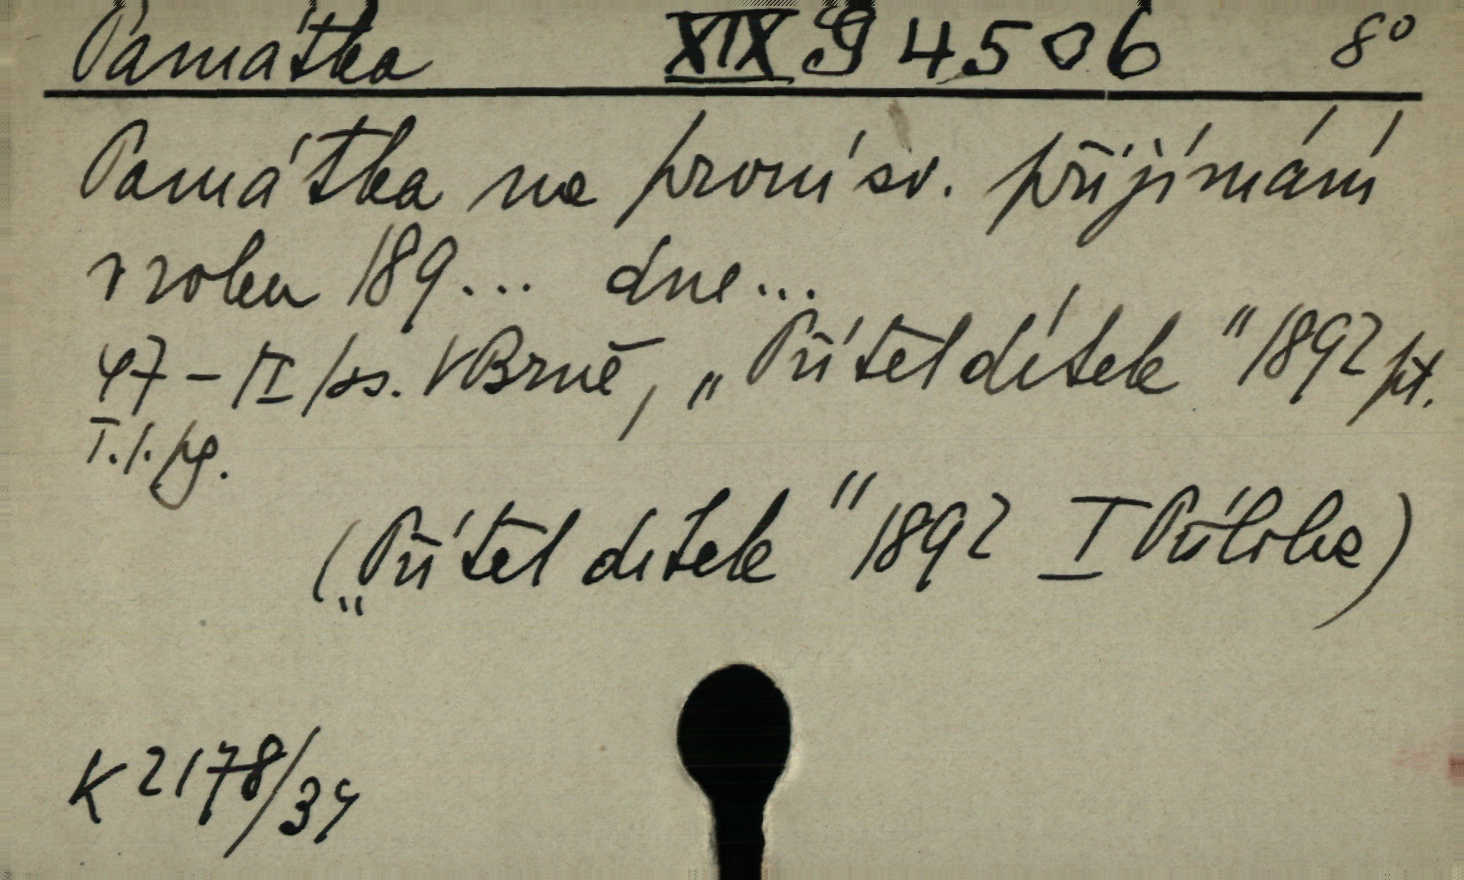 Památka XIX g 4506 8°
Památka na první sv. přijímání
v roku 189... dne...
47 - II/ss. V Brně, „Přítel dítek" 1892 pt.
T.1.pg.
(„Přítel dítek" 1892 I Příloha)
K 2178/34